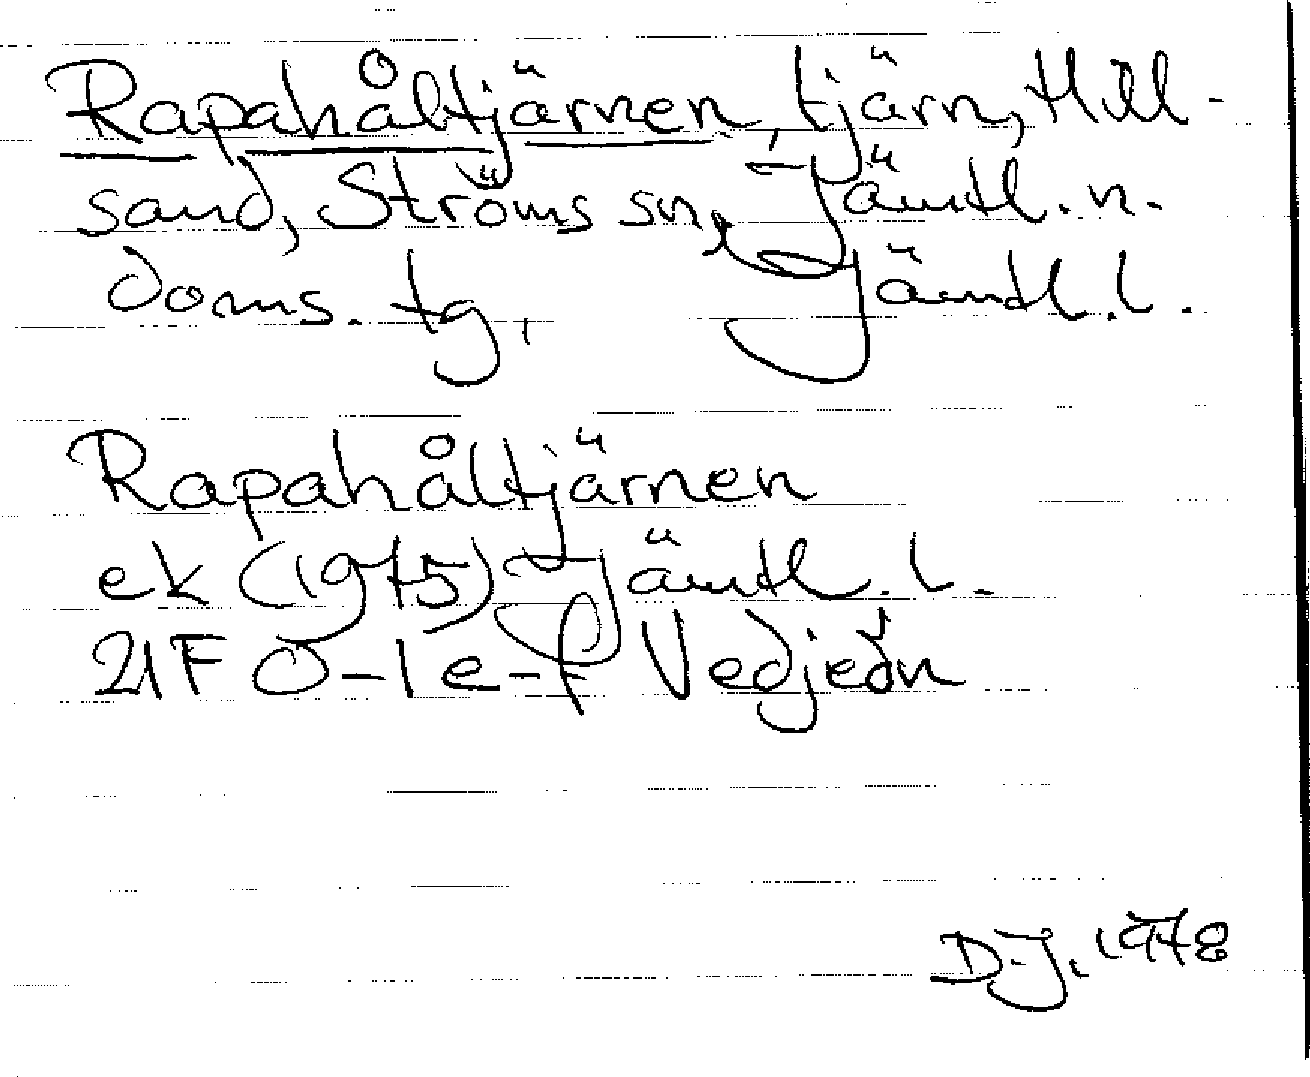 Rapahåltjärnen, tjärn, Hill-
sand, Ströms sn, Jämtl. n.
doms. tg, Jämtl. l.
Rapahåltjärnen
ek (1975) Jämtl. l.
21F 0-1 e-f Vedjeön
D.J. 1978